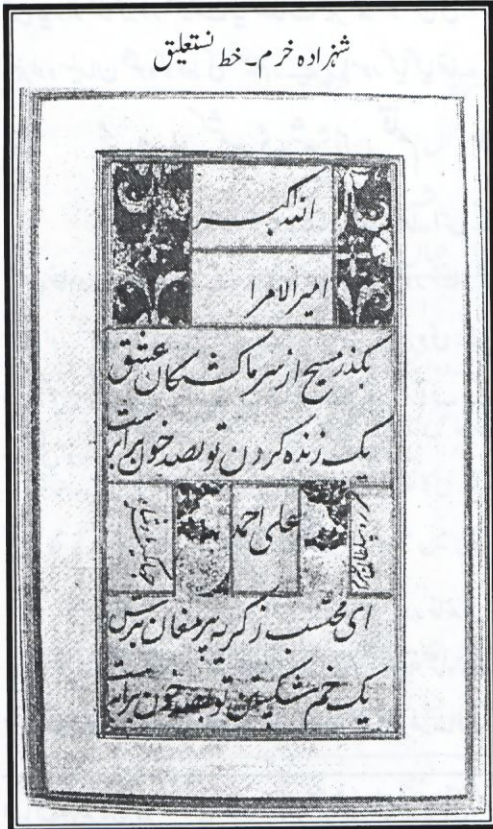 شہزادہ خرم۔ خط نستعلیق
اللہ اکبر
امیر الامرا
بگذر مسیح از سر ما کشتگان عشق
یک زنده کردن تو بصد خون برابر است
علی احمد
ای محتسب ز گریه پیر مغان بترس
یک خم شکستن تو بصد خون برابر است